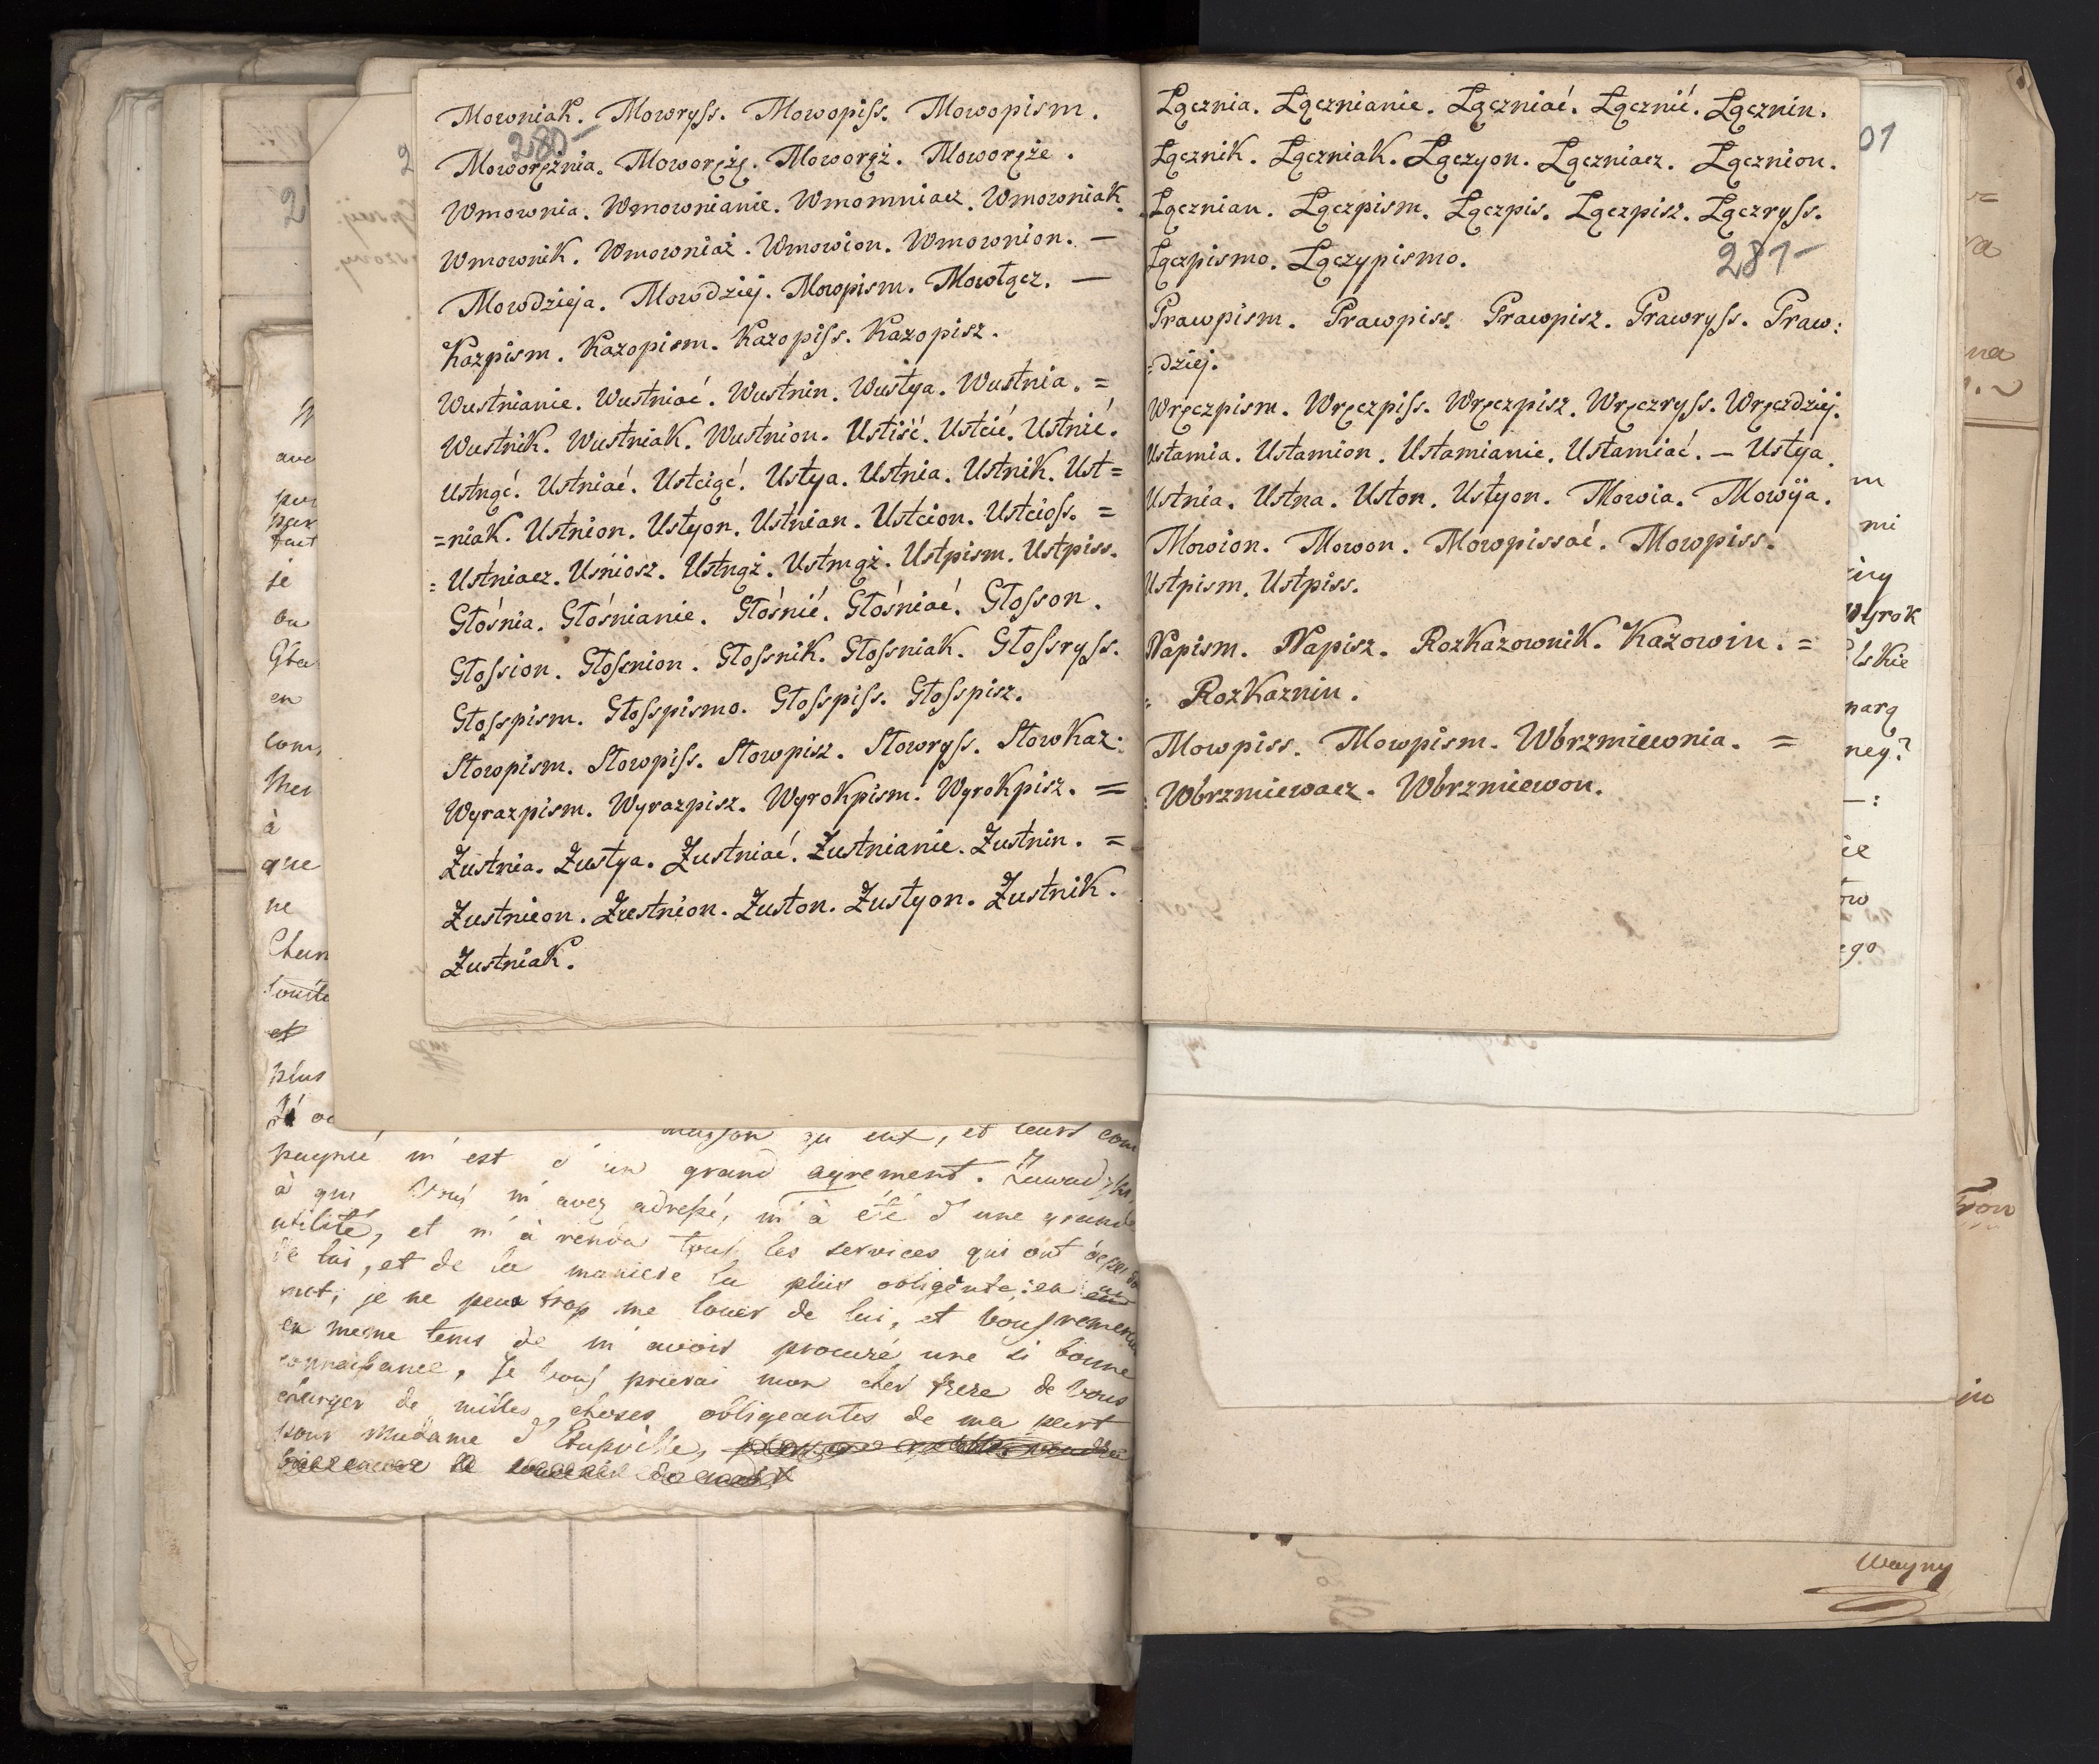 Mowniak. Mowryss. Mowopiss. Mowopism.
280-
Moworężnia. Moworężę. Moworęż. Moworęże.
Wmownia. Wmownianie. Wmomniacz. Wmowniak.
Wmownik. Wmowniaż. Wmowion. Wmownion. —
Mowdzieja. Mowdziej. Mowpism. Mowłącz. —
Kazpism. Kazopism. Kazopiss. Kazopisz.
Wustnianie. Wustniać. Wustnin. Wustya. Wustnia. =
Wustnik. Wustniak. Wustnion. Ustiść. Uścić. Ustnić.
Ustnąć. Ustniać. Uściąć. Ustya. Ustnia. Ustnik. Ust=
=niak. Ustnion. Ustyon. Ustnian. Ustcion. Ustcioss. =
= Ustniacz. Uśniosz. Ustnąż. Ustmąż. Ustpism. Ustpiss.
Głośnia. Głośnianie. Głośnić. Głośniać. Głosson.
Głossion. Głosnion. Głossnik. Głossniak. Głossryss.
Głosspism. Głosspismo. Głosspiss. Głosspisz.
Słowpism. Słowpiss. Słowpisz. Słowryss. Słowkaz:
Wyrazpism. Wyrazpisz. Wyrokpism. Wyrokpisz. =
Zustnia. Zustya. Zustniać. Zustnianie. Zustnin. =
Zustnieon. Zustnion. Zuston. Zustyon. Zustnik.
Zustniak.
Łącznia. Łącznianie. Łączniać. Łącznić. Łącznin.
Łącznik. Łączniak. Łączyon. Łączniacz. Łącznion.
Łącznian. Łączpism. Łączpis. Łączpisz. Łączryss.
Łączpismo. Łączypismo.
281-
Prawpism. Prawpiss. Prawpisz. Prawryss. Praw:
=dziej.
Wręczpism. Wręczpiss. Wręczpisz. Wręczryss. Wręczdziej.
Ustamia. Ustamion. Ustamianie. Ustamiać. — Ustya.
Ustnia. Ustna. Uston. Ustyon. Mowia. Mowija.
Mowion. Mowon. Mowpissać. Mowpiss.
Ustpism. Ustpiss.
Napism. Napisz. Rozkazownik. Kazowin. =
= Rozkaznin.
Mowpiss. Mowpism. Wbrzmiewnia. =
= Wbrzmiewacz. Wbrzmiewon.
01
Wyrok
ave
je
en
à
que
ne
et
plus
eux, et leurs com
m'est d'un grand agrement.
à qui Vous m'avez adressé, m'à été d'une grande
utilité, et m'à rendu tous les services qui ont
de lui, et de la maniere la plus obligente; en
mot, je ne peux trop me louer de lui, et vous
en meme tems de m'avoir procuré une si bonne
connaissance, Je vous prierai mon cher frere de vous
charger de milles choses obligeantes de ma part
pour Madame
Wayny